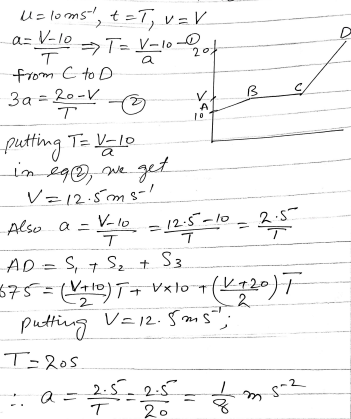 u=10ms⁻¹, t=T, v=V
a=V-10/T ⇒ T=V-10/a -①
from C to D
3a=20-V/T -②
putting T=V-10/a
in eq②, we get
V=12.5ms⁻¹
Also a=V-10/T =12.5-10/T =2.5/T
AD=S₁+S₂+S₃
675=(V+10/2)T+V×10+(V+20/2)T
putting V=12.5ms⁻¹;
T=20s
∴ a=2.5/T=2.5/20=1/8 ms⁻²
20
V
A
10
B
C
D